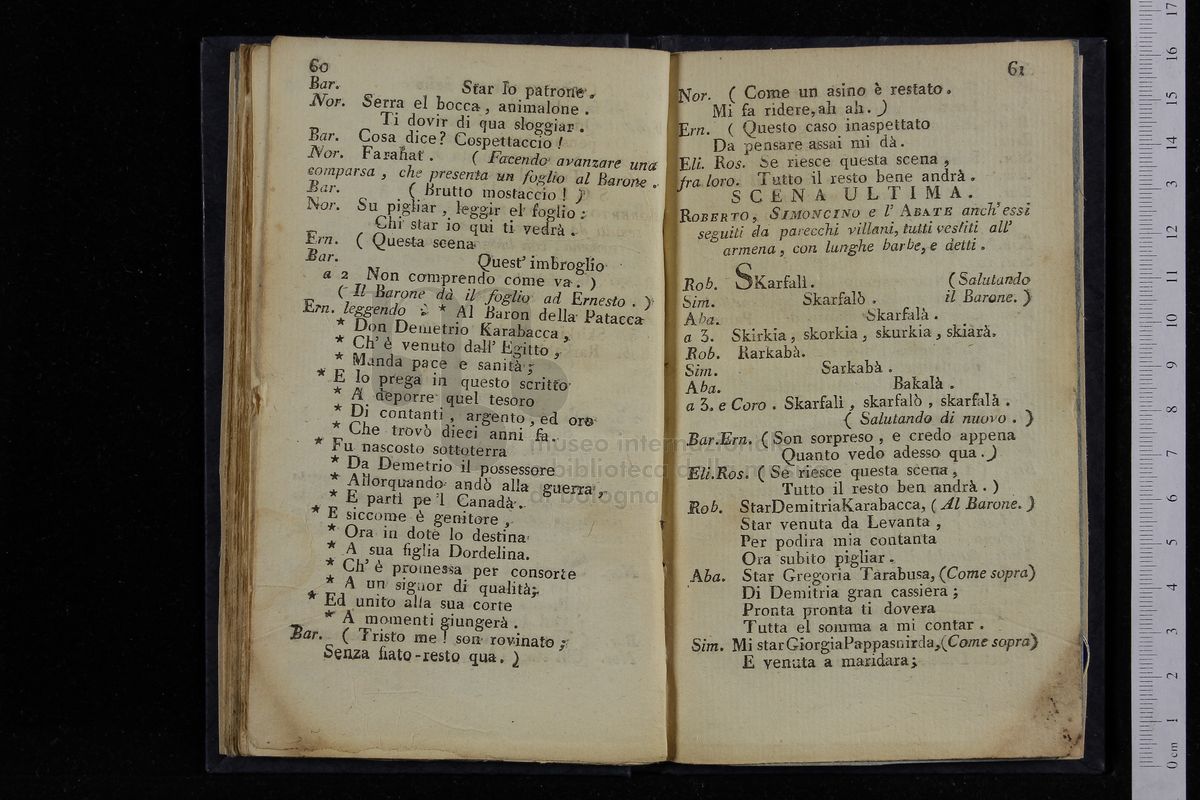 60
Bar. Star Io patrone.
Nor. Serra el bocca, animalone.
Ti dovir di qua sloggiar.
Bar. Cosa dice? Cospettaccio!
Nor. Farahat. ( Facendo avanzare una
comparsa, che presenta un foglio al Barone.
Bar. ( Brutto mostaccio! )
Nor. Su pigliar, leggir el foglio:
Chi star io qui ti vedrà.
Ern. ( Questa scena
Bar. Quest' imbroglio
a 2 Non comprendo come va. )
( Il Barone dà il foglio ad Ernesto. )
Ern. leggendo : * Al Baron della Patacca
* Don Demetrio Karabacca,
* Ch' è venuto dall' Egitto,
* Manda pace e sanità;
* E lo prega in questo scritto
* A deporre quel tesoro
* Di contanti, argento, ed oro
* Che trovò dieci anni fa.
* Fu nascosto sottoterra
* Da Demetrio il possessore
* Allorquando andò alla guerra,
* E partì pe 'l Canadà.
* E siccome è genitore,
* Ora in dote lo destina
* A sua figlia Dordelina.
* Ch' è promessa per consorte
* A un signor di qualità;
* Ed unito alla sua corte
* A momenti giungerà.
Bar. ( Tristo me! son rovinato;
Senza fiato resto qua. )
61
Nor. ( Come un asino è restato.
Mi fa ridere, ah ah. )
Ern. ( Questo caso inaspettato
Da pensare assai mi dà.
Eli. Ros. Se riesce questa scena,
fra loro. Tutto il resto bene andrà.
SCENA ULTIMA.
ROBERTO, SIMONCINO e l' ABATE anch' essi
seguiti da parecchi villani, tutti vestiti all'
armena, con lunghe barbe, e detti.
Rob. SKarfalì. (Salutando
Sim. Skarfalò. il Barone. )
Aba. Skarfalà.
a 3. Skirkia, skorkia, skurkia, skiarà.
Rob. Karkabà.
Sim. Sarkabà.
Aba. Bakalà.
a 3. e Coro. Skarfalì, skarfalò, skarfalà.
( Salutando di nuovo. )
Bar.Ern. ( Son sorpreso, e credo appena
Quanto vedo adesso qua. )
Eli.Ros. ( Se riesce questa scena,
Tutto il resto ben andrà. )
Rob. StarDemitriaKarabacca, ( Al Barone. )
Star venuta da Levanta,
Per podira mia contanta
Ora subito pigliar.
Aba. Star Gregoria Tarabusa, (Come sopra)
Di Demitria gran cassiera;
Pronta pronta ti dovera
Tutta el somma a mi contar.
Sim. Mi starGiorgiaPappasnirda,(Come sopra)
E venuta a maridara;
museo internazionale
e biblioteca della musica
di bologna